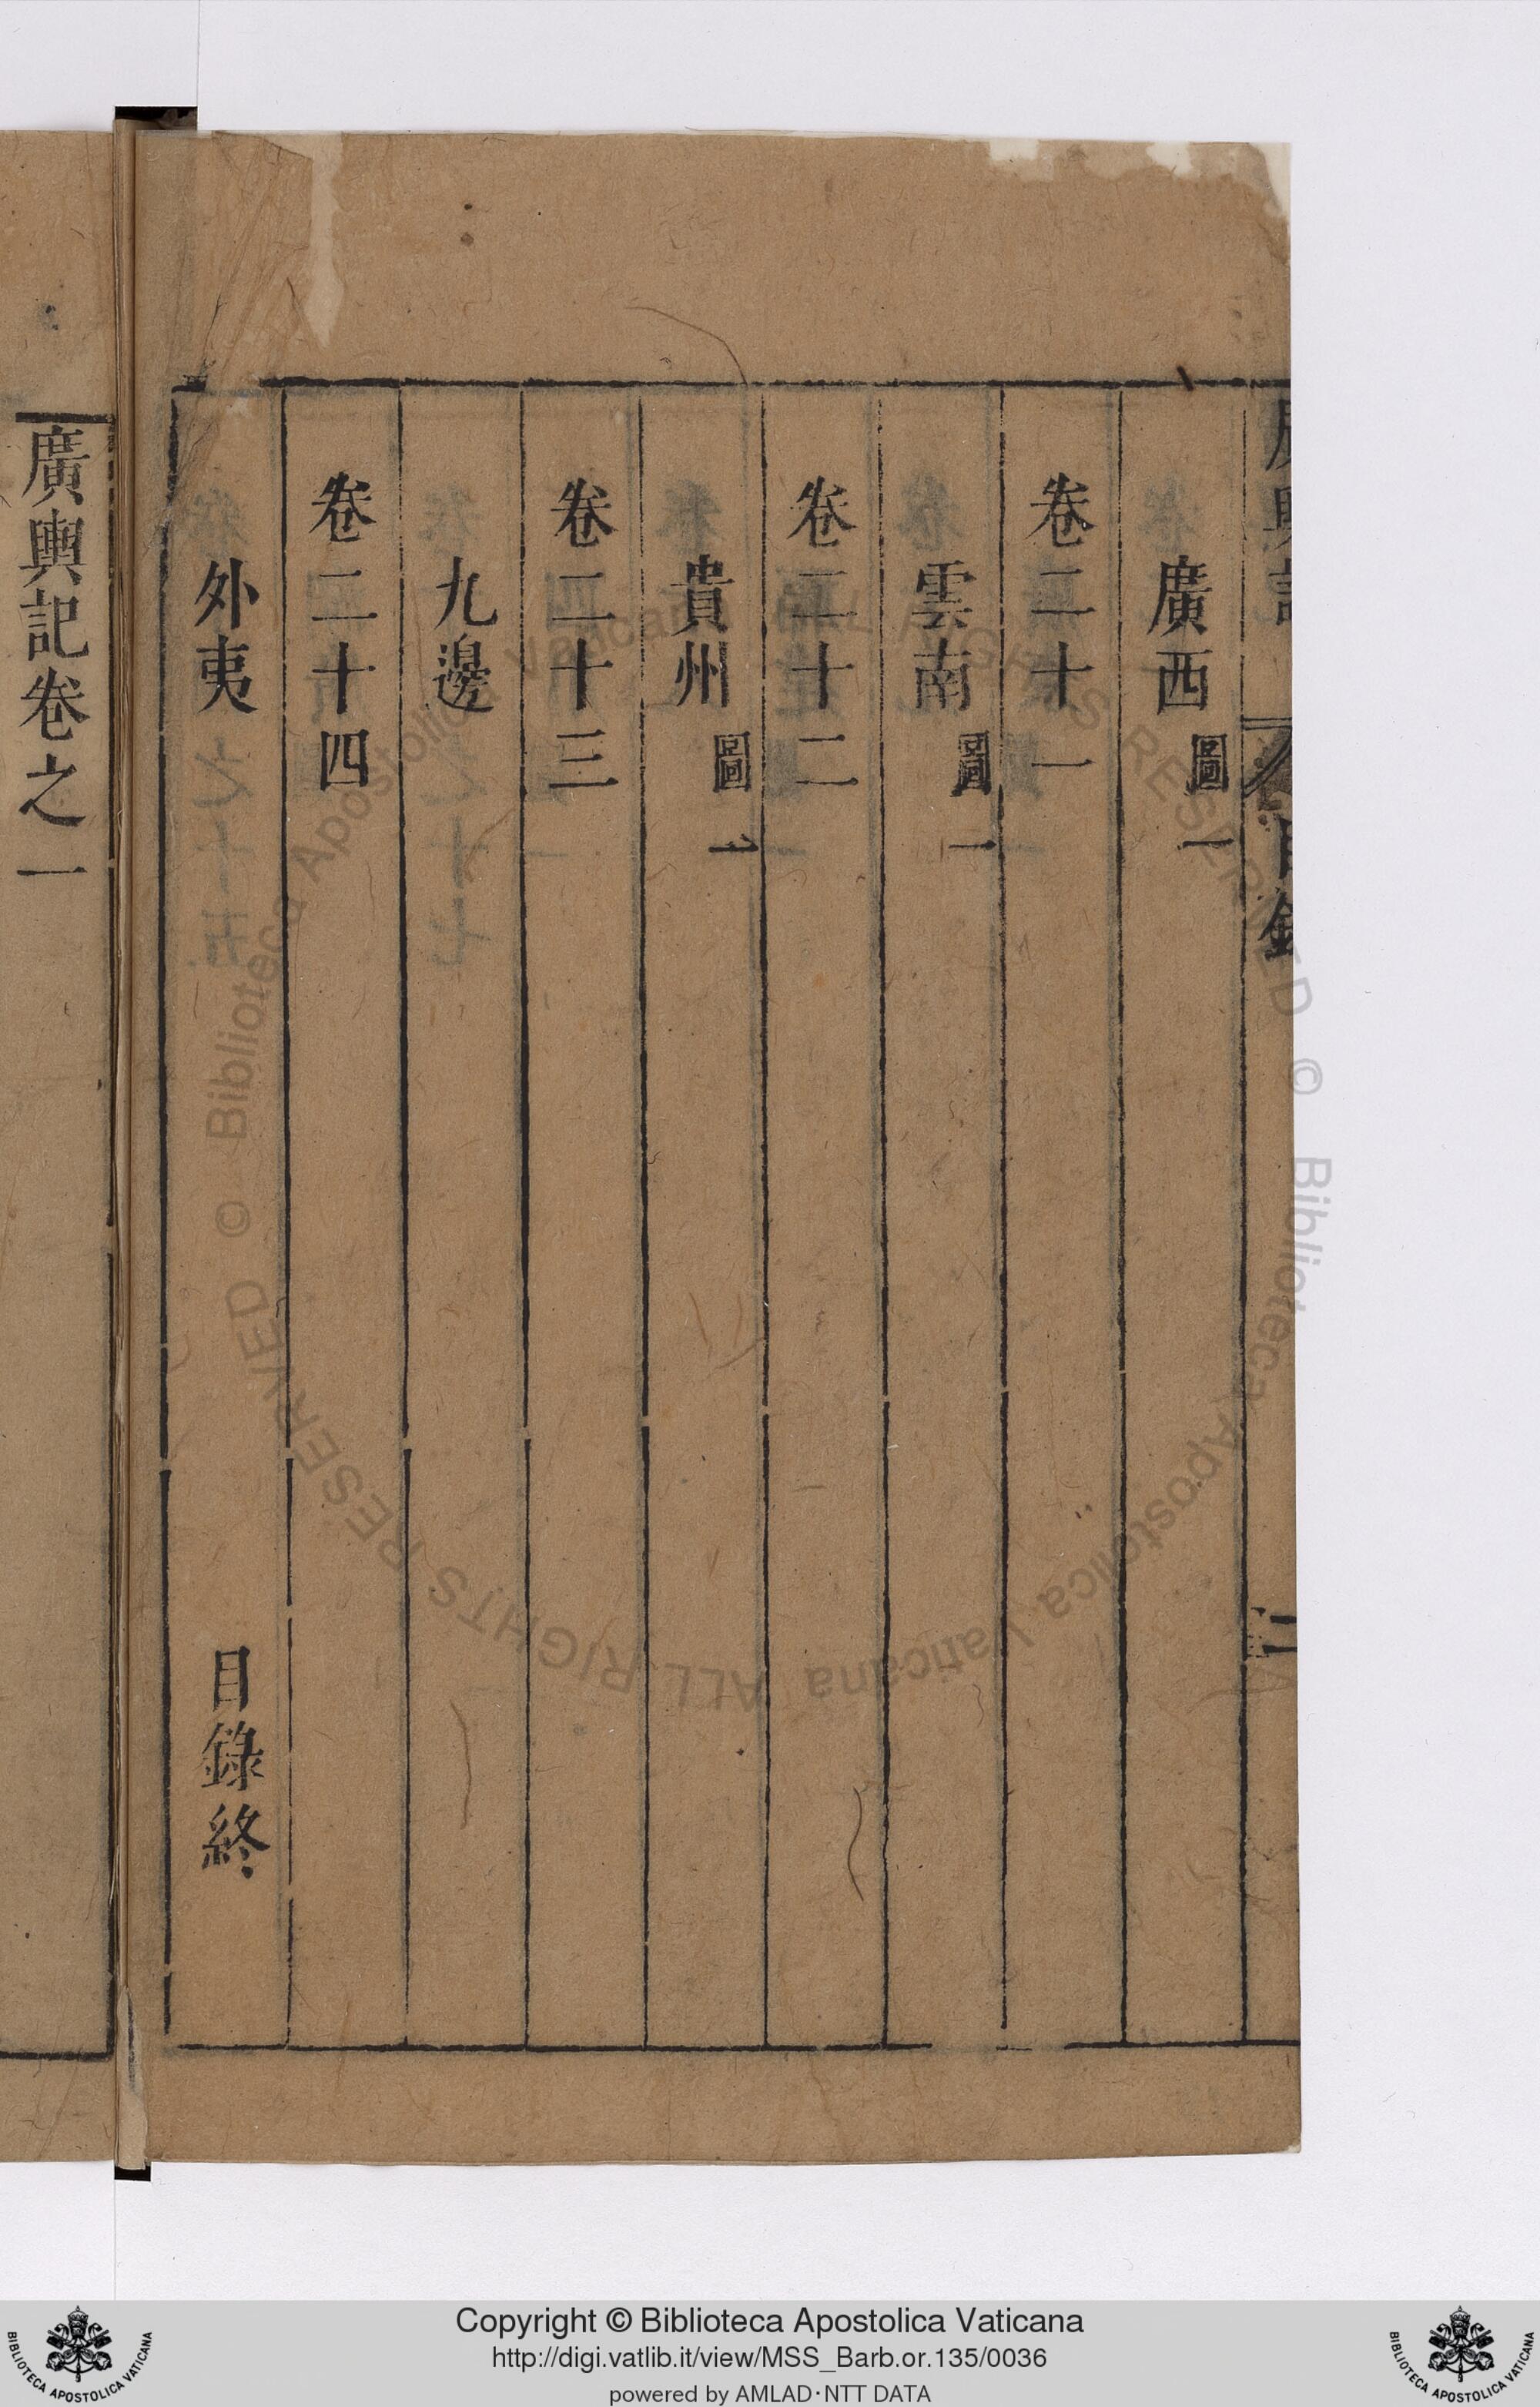 廣輿記 目錄 二
廣西 圖一
卷二十一
雲南 圖一
卷二十二
貴州 圖一
卷二十三
九邊
卷二十四
外夷 目錄終
廣輿記卷之一
© Biblioteca Apostolica Vaticana ALL RIGHTS RESERVED © Biblioteca Apostolica Vaticana ALL RIGHTS RESERVED
Copyright © Biblioteca Apostolica Vaticana
http://digi.vatlib.it/view/MSS_Barb.or.135/0036
powered by AMLAD·NTT DATA
BIBLIOTECA APOSTOLICA VATICANA
BIBLIOTECA APOSTOLICA VATICANA